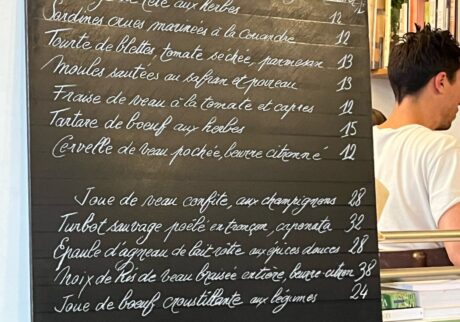 de tête aux herbes 12
Sardines crues marinées à la coriandre 12
Tourte de blettes, tomate séchée, parmesan 13
Moules sautées au safran et poireau 13
Fraise de veau à la tomate et capres 12
Tartare de boeuf aux herbes 15
Cervelle de veau pochée, beurre citronné 12
Joue de veau confite, aux champignons 28
Turbot sauvage poêlé en tronçon, caponata 32
Epaule d'agneau de lait rôtie aux épices douces 28
Noix de Ris de veau braisée entière, beurre-citron 38
Joue de boeuf croustillante aux légumes 24